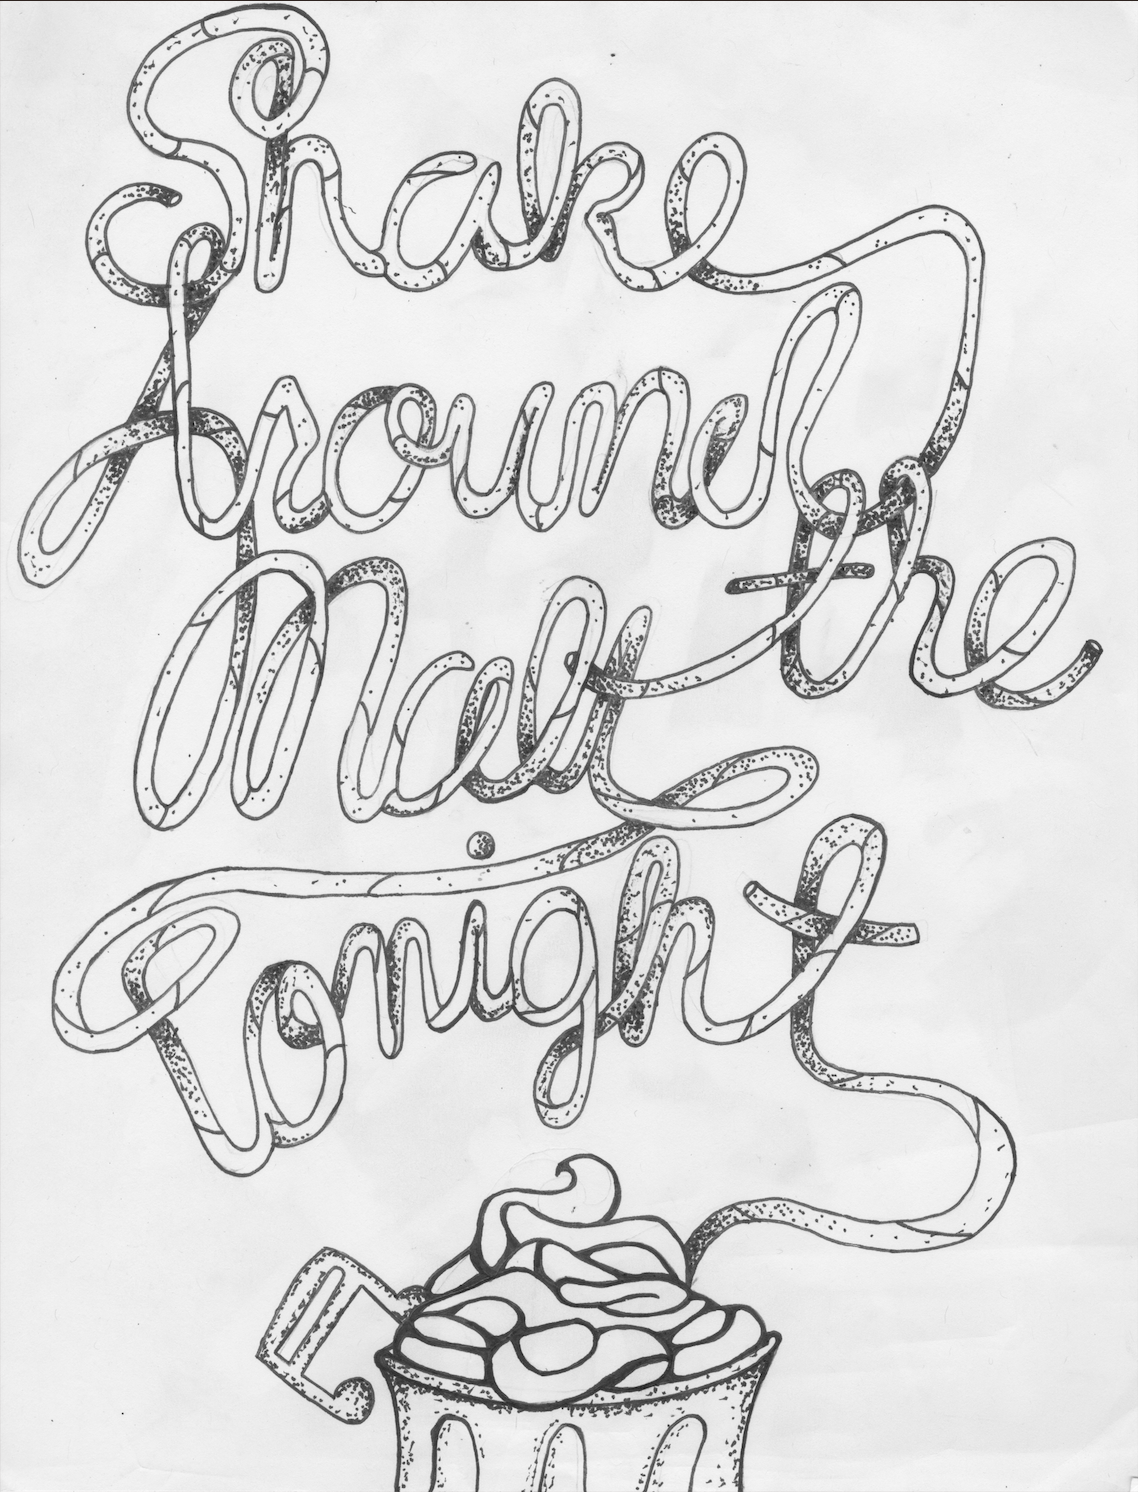 Shake
Around the
Malt
Tonight